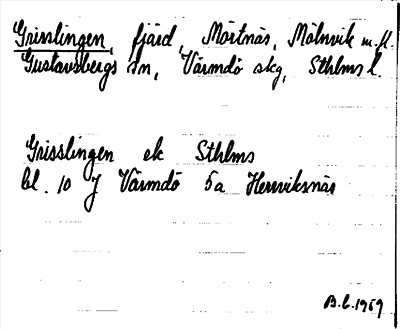 Grisslingen, fjärd, Mörtnäs, Mölnvik m.fl.
Gustavsbergs sn, Värmdö skg, Sthlms l.
Grisslingen ek Sthlms
bl. 10 J Värmdö 5a Herrviksnäs
B.L. 1969